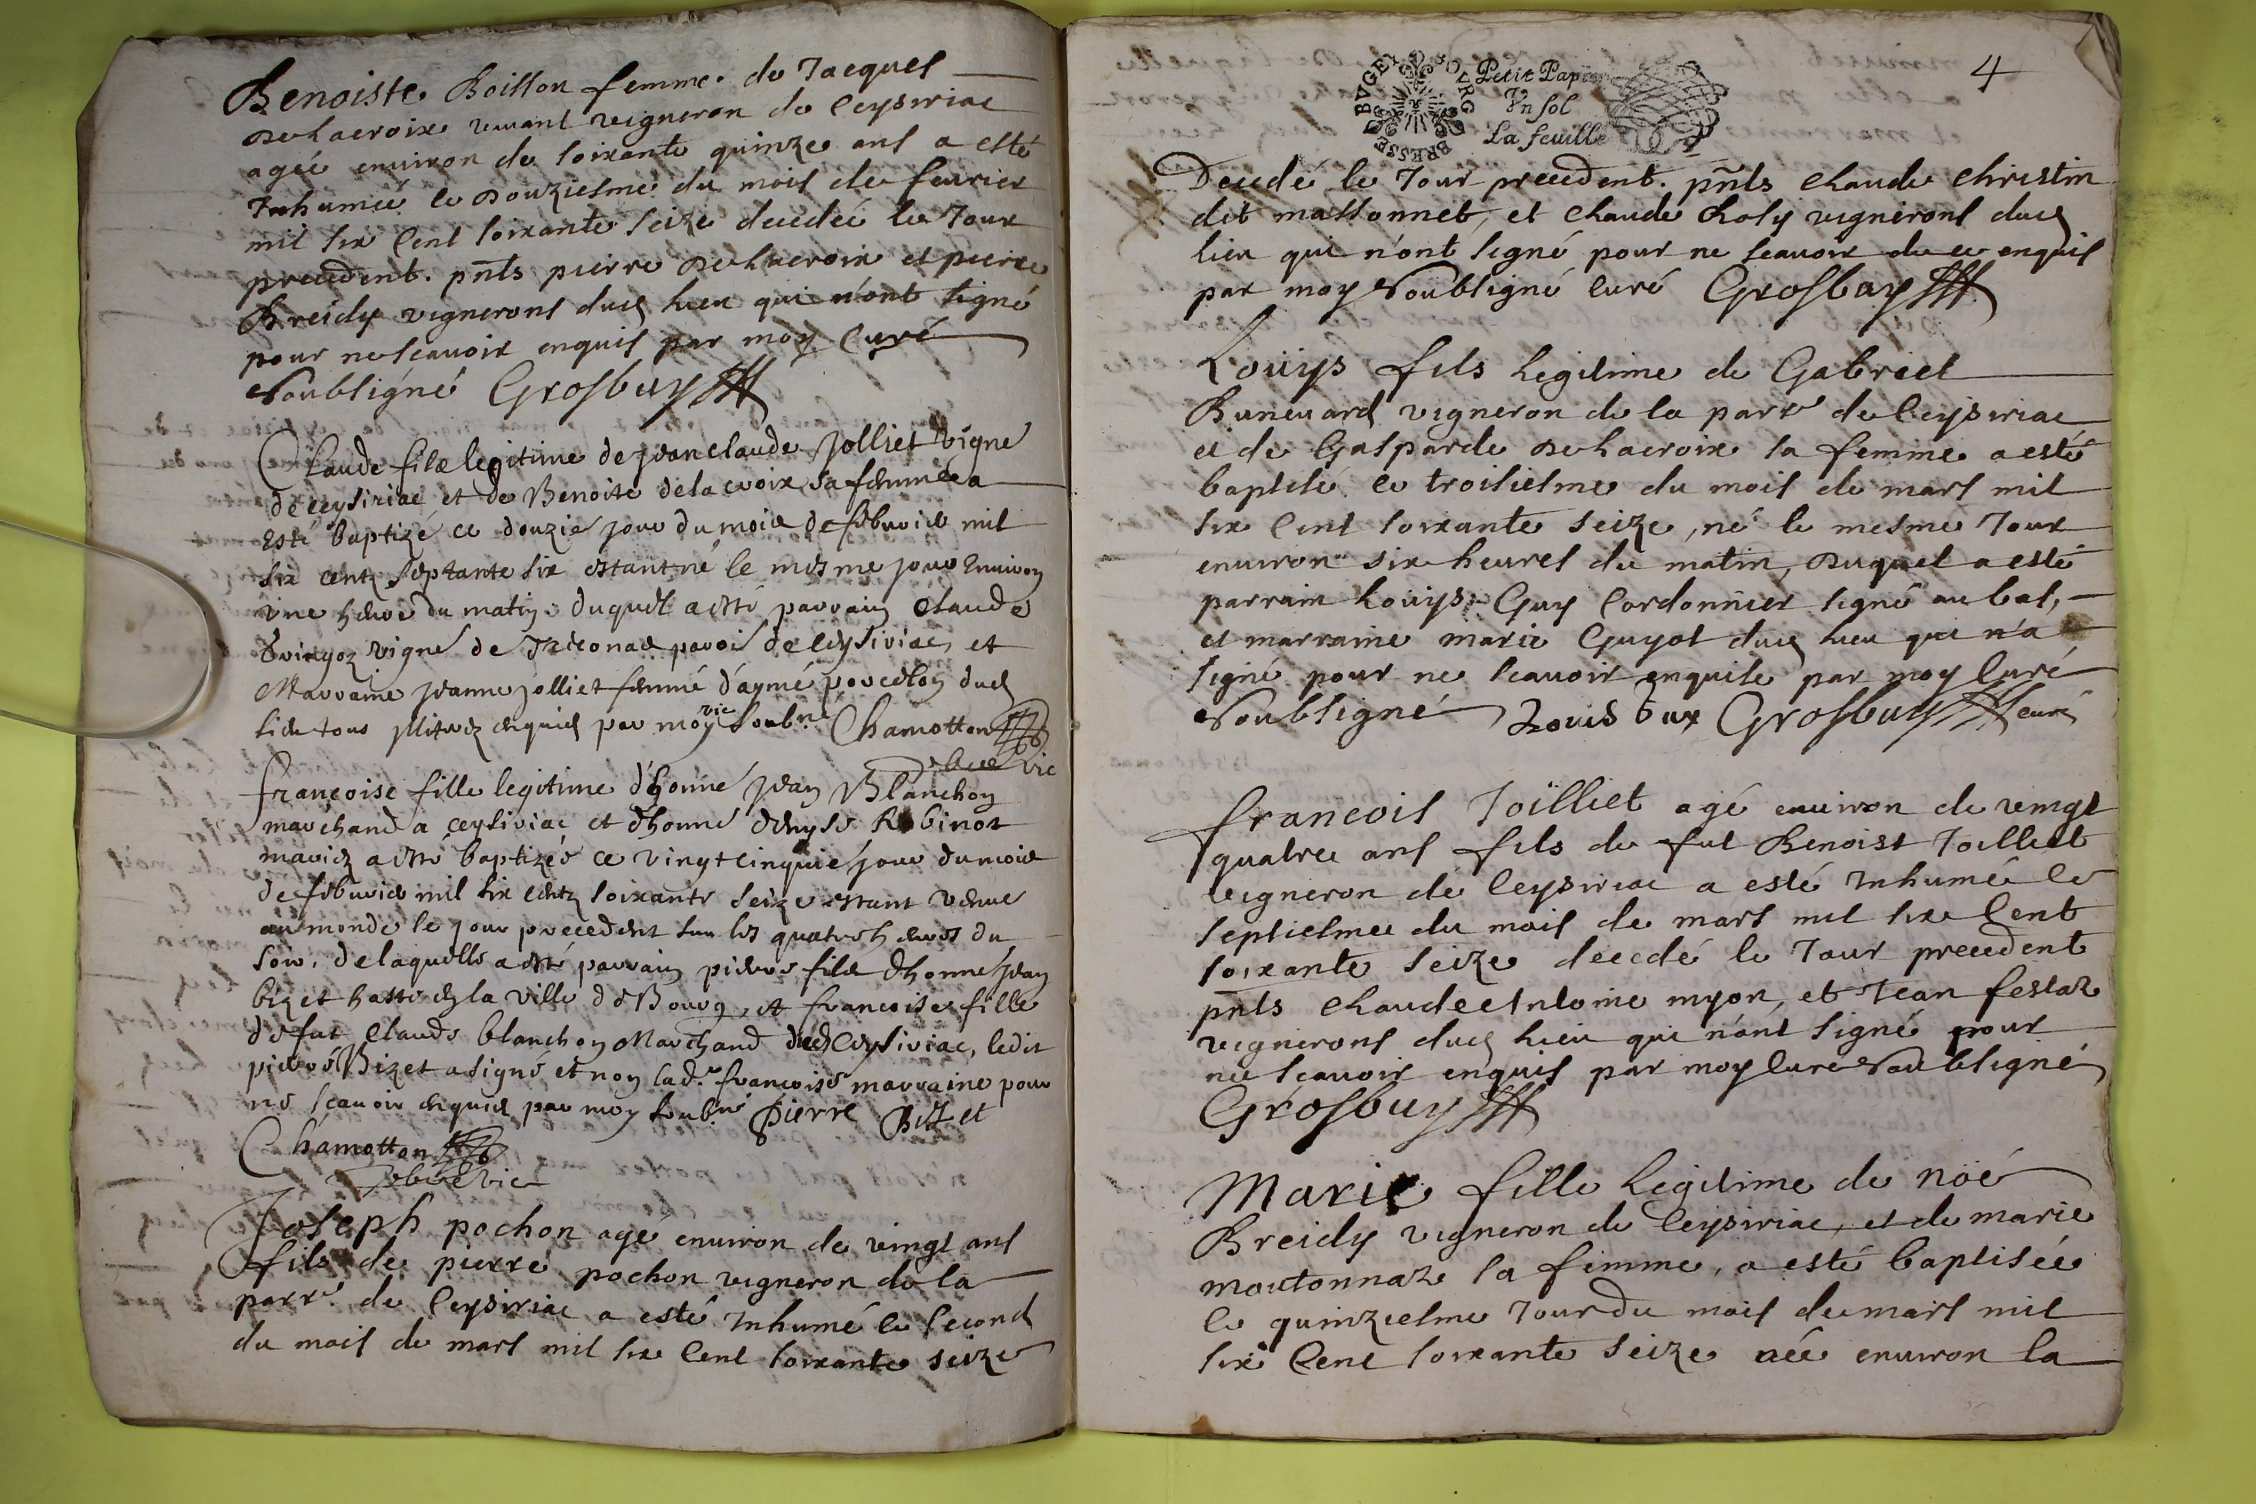 Benoiste Boisson femme de Jacques
Delacroix vivant vigneron de Ceysiriac
agée environ de soixante quinze ans a esté
Inhumée le Douziesme du mois de fevrier
mil six Cent soixante seize decedée le Jour
precedent. pnts pierre Delacroix et pierre
Breidy vignerons dud lieu qui n'ont signé
pour ne scavoir enquis par moy Curé
Soubsigné Grosbuy
Claude filz legitime de Jean claude Jolliet vigne
de ceysiriac et de Benoite dela croix sa femme a
Esté baptizé ce douzie jour du mois de febvrier mil
six centz septante six estant né le mesme jour Environ
vne heure du matin. duquel a esté parrain Claude
vigne de parois de ceysiriac, et
Marraine jeanne jolliet femme d'aymé dud
lieu tous illiterez enquis par moy vic soubne Chamotton
vic
françoise fille legitime d'honne Jean Blanchon
marchand a ceysiriac et d'honne denyse Robinot
mariez a esté baptizée ce vingtcinquie jour du mois
de febvrier mil six centz soixante seize estant venue
au monde le jour precedent sur les quatre heures du
soir. de laquelle a esté parrain pierre filz d'honne jean
bizet haste en la ville de Bourg, et francoise fille
de fut Claude blanchon Marchand dud Ceysiriac, ledit
pierre Bizet a signé et non lad.e francoise marraine pour
ne scavoir enquis par moy soubne Pierre Bizet
Chamotton
vic
Joseph pochon agé environ de vingt ans
fils de pierre pochon vigneron de la
parre de Ceysiriac a esté Inhumé le second
du mois de mars mil six Cent soixante seize
4
BVGEY BOVRG BRESSE
Petit Papier
Vn sol
La feuille
Decedé le Jour precedent. pnts Claude Christin
dit massonnet, et Claude Rosy vignerons dud
lieu qui n'ont signé pour ne scavoir de ce enquis
par moy Soubsigné Curé Grosbuy
Louys fils legitime de Gabriel
Bunevard vigneron de la parre de Ceysiriac
et de Gasparde Delacroix sa femme a esté
baptisé le troisiesme du mois de mars mil
six Cent soixante seize, né le mesme Jour
environ six heures du matin, Duquel a esté
parrain Louys Guy Cordonnier signé au bas,
et marraine marie Guyot dud lieu qui n'a
signé pour ne scavoir enquise par moy Curé
Soubsigné Louis Grosbuy curé
francois Joïlliet agé environ de vingt
quatre ans fils de fut Benoist Joilliet
vigneron de Ceysiriac a esté Inhumé le
septiesme du mois de mars mil six Cent
soixante seize decedé le Jour precedent
pnts Claude Antoine myon, et Jean festaz
vignerons dud lieu qui n'ont signé pour
ne scavoir enquis par moy Curé Soubsigné
Grosbuy
Marie fille legitime de noé
Breidy vigneron de Ceysiriac, et de marie
moutonnaz sa femme, a esté baptisée
le quinziesme Jour du mois de mars mil
six Cent soixante seize née environ la